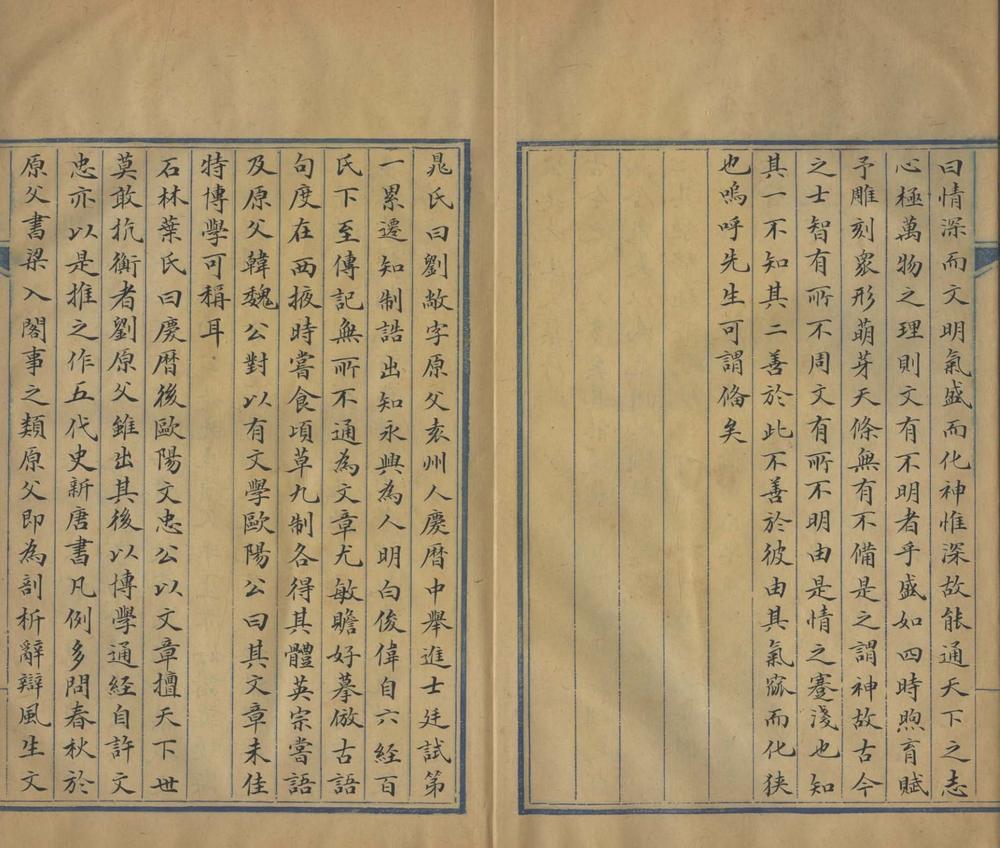 曰情深而文明氣盛而化神惟深故能通天下之志
心極萬物之理則文有不明者乎盛如四時煦育賦
予雕刻衆形萌芽天條無有不備是之謂神故古今
之士智有所不周文有所不明由是情之蹇淺也知
其一不知其二善於此不善於彼由其氣窳而化狹
也嗚呼先生可謂俻矣
晁氏曰劉敞字原父袁州人慶曆中舉進士廷試第
一累遷知制誥出知永興為人明白俊偉自六經百
氏下至傳記無所不通為文章尤敏贍好摹倣古語
句度在西掖時嘗食頃草九制各得其體英宗嘗語
及原父韓魏公對以有文學歐陽公曰其文章未佳
特博學可稱耳
石林葉氏曰慶曆後歐陽文忠公以文章擅天下世
莫敢抗衡者劉原父雖出其後以博學通經自許文
忠亦以是推之作五代史新唐書凡例多問春秋於
原父書梁入閣事之類原父即為剖析辭辯風生文